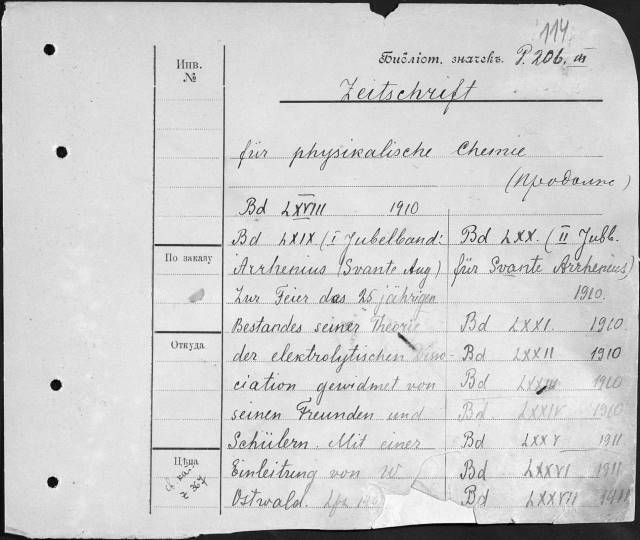 114.
Библіот. значекъ. P. 206. III
Инв.
№
Zeitschrift
für physikalische Chemie
(Продолже)
Bd LXVIII 1910
Bd LXIX (I Jubelband:
Arrhenius (Svante Aug)
Zur Feier des 25 jährigen
Bestandes seiner Theorie
der elektrolytischen
ciation gewidmet von
seinen Freunden und
Schülern. Mit einer
Einleitung von W
Ostwald.
Bd LXX. (II Jubb.
für Svante Arrhenius)
1910.
Bd LXXI. 1910
Bd LXXII 1910
Bd LXXIII 1910
Bd LXXIV 1910
Bd LXXV 1911
Bd LXXVI 1911
Bd LXXVII 1911
По заказу
Откуда
Цѣна